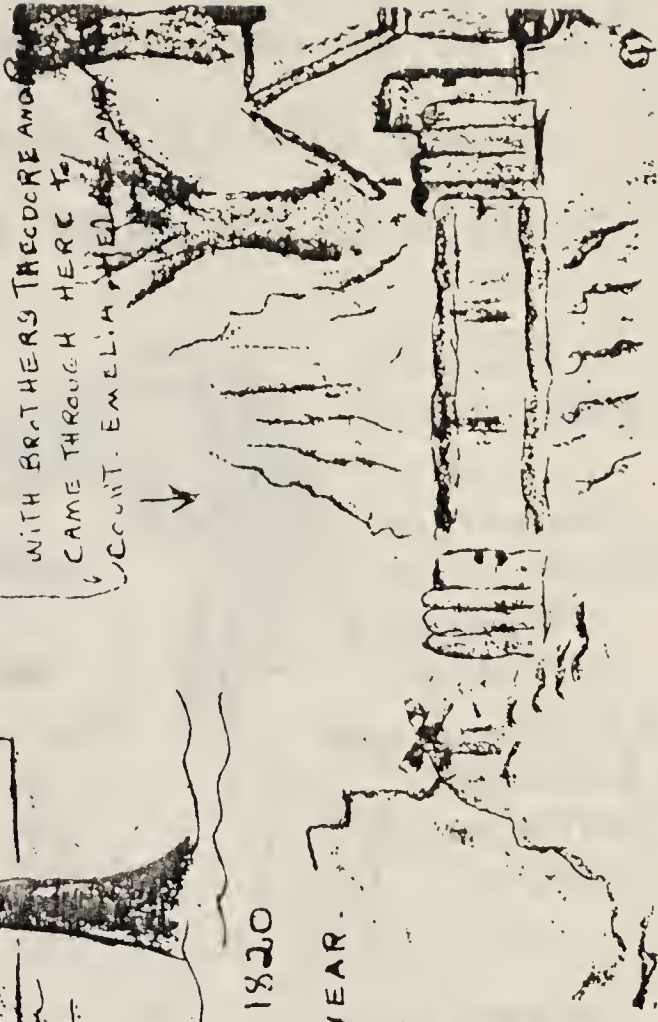 WITH BROTHERS THEODORE AND
CAME THROUGH HERE TO
COUNT. EMELIA, HELEN AND
1820
YEAR.